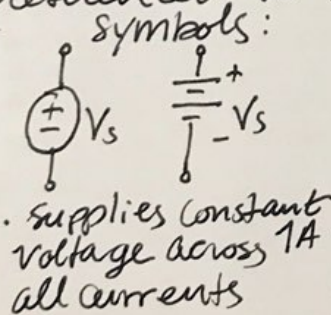 symbols:
+ - Vs
+ - Vs
· supplies constant
voltage across 1A
all currents